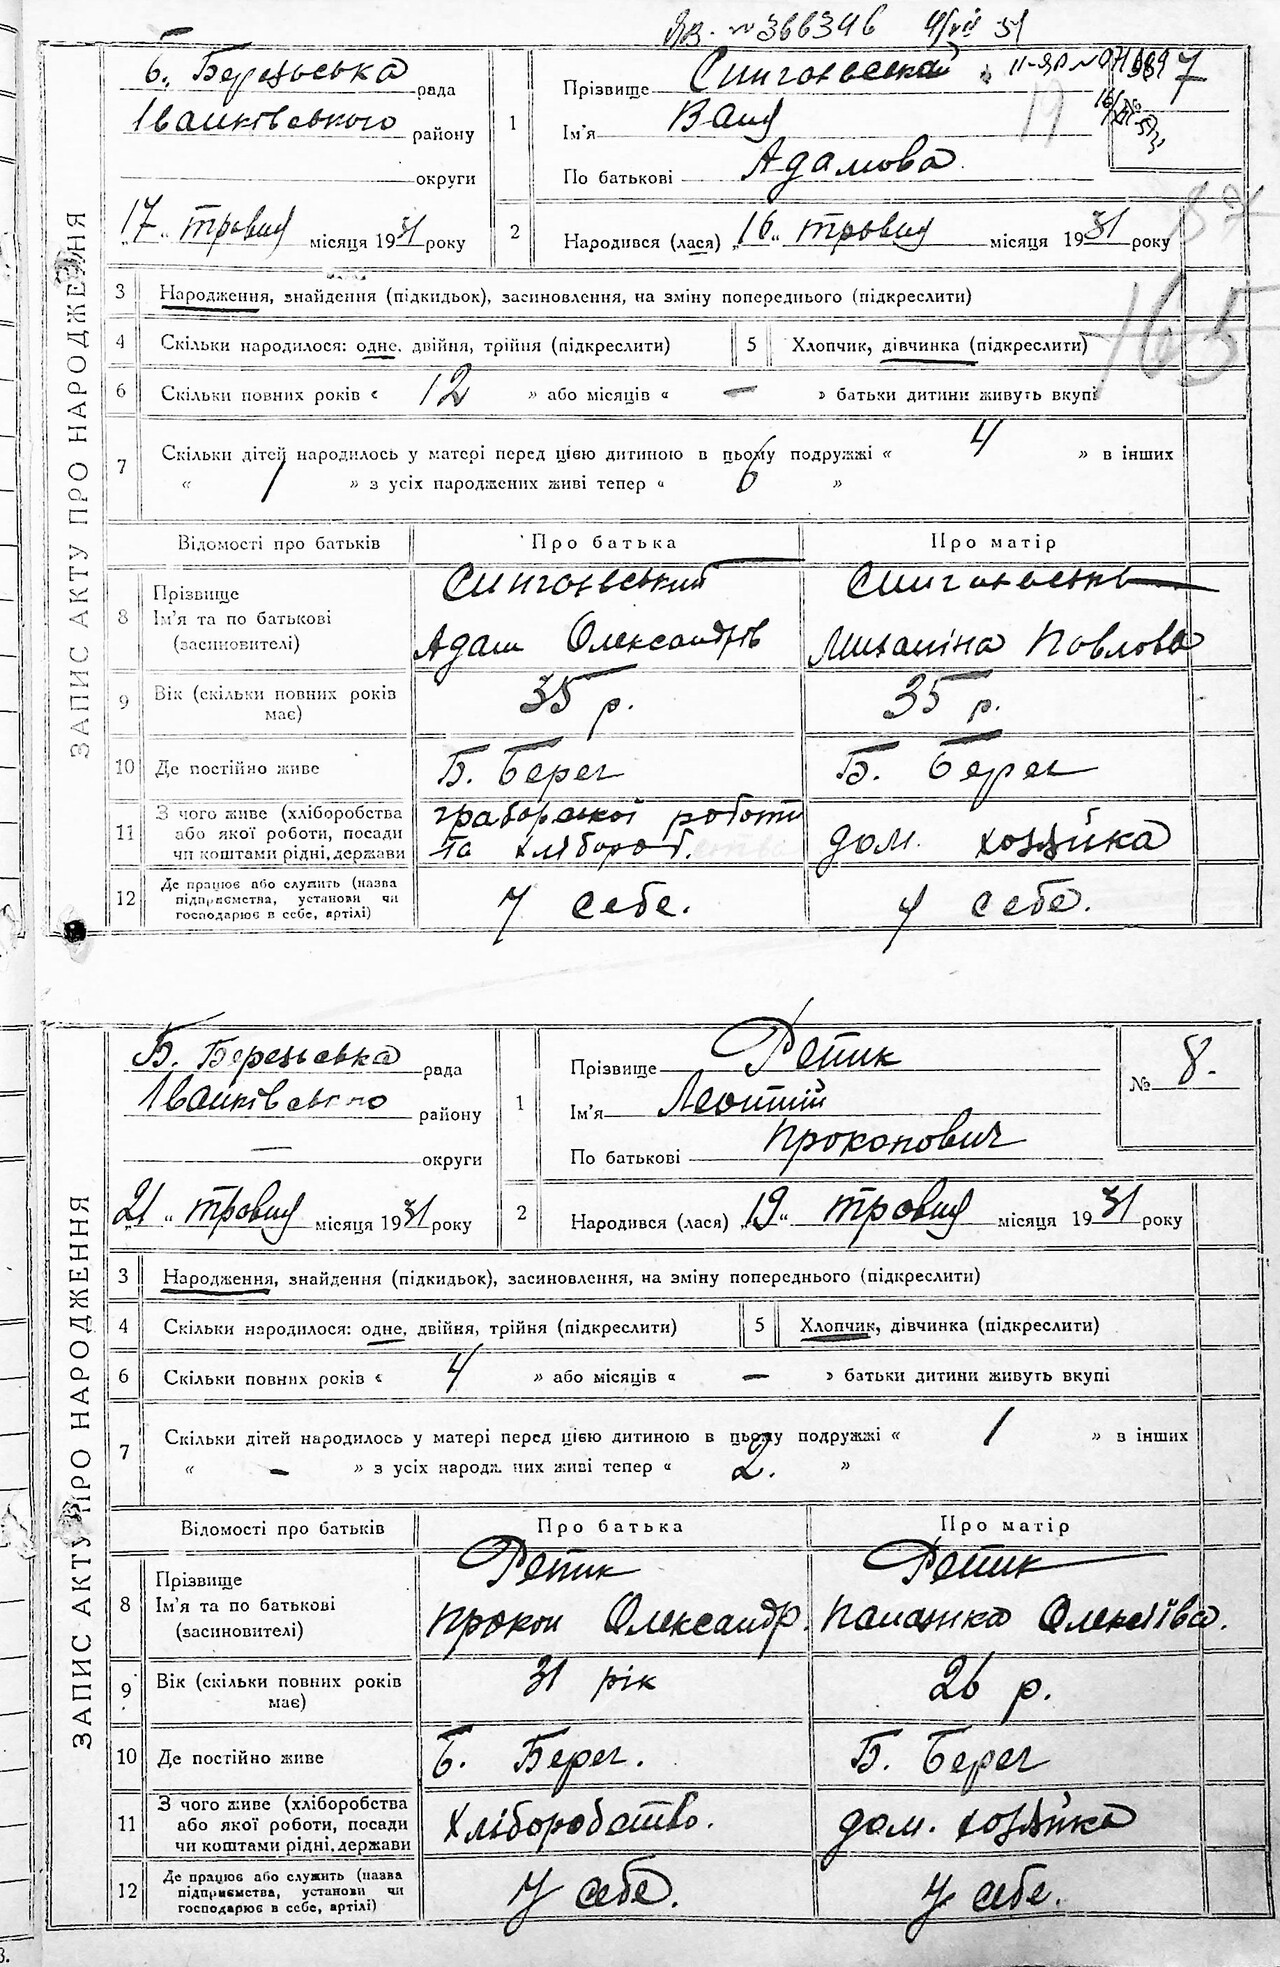 ЗАПИС АКТУ ПРО НАРОДЖЕННЯ
Б. Березьська рада
Іванківського району
округи
„17“ травня місяця 1931 року
1 Прізвище
Ім'я Ваня
По батькові Адамова
7
2 Народився (лася) „16“ травня місяця 1931 року
165
3 Народження, знайдення (підкидьок), засиновлення, на зміну попереднього (підкреслити)
4 Скільки народилося: одне, двійня, трійня (підкреслити) 5 Хлопчик, дівчинка (підкреслити)
6 Скільки повних років « 12 » або місяців « — » батьки дитини живуть вкупі
7 Скільки дітей народилось у матері перед цією дитиною в цьому подружжі « 4 » в інших
« 1 » з усіх народжених живі тепер « 6 »
Відомості про батьків Про батька Про матір
8 Прізвище
Ім'я та по батькові
(засиновителі)
Адам Олександрів Михаліна Павлова
9 Вік (скільки повних років має) 35 р. 35 р.
10 Де постійно живе Б. Берег Б. Берег
11 З чого живе (хліборобства
або якої роботи, посади
чи коштами рідні, держави
грабарської роботи
та хлібороб. дом. хозяйка
12 Де працює або служить (назва
підприємства, установи чи
господарює в себе, артілі)
У себе. У себе.
ЗАПИС АКТУ ПРО НАРОДЖЕННЯ
Б. Березьська рада
Іванківського району
— округи
„21“ травня місяця 1931 року
1 Прізвище Репик
Ім'я Леонтій
По батькові Прокопович
№ 8.
2 Народився (лася) „19“ травня місяця 1931 року
3 Народження, знайдення (підкидьок), засиновлення, на зміну попереднього (підкреслити)
4 Скільки народилося: одне, двійня, трійня (підкреслити) 5 Хлопчик, дівчинка (підкреслити)
6 Скільки повних років « 4 » або місяців « — » батьки дитини живуть вкупі
7 Скільки дітей народилось у матері перед цією дитиною в цьому подружжі « 1 » в інших
« — » з усіх народжених живі тепер « 2. »
Відомості про батьків Про батька Про матір
8 Прізвище
Ім'я та по батькові
(засиновителі)
Репик Репик
Прокоп Олександр. Палажка Олексіїва.
9 Вік (скільки повних років має) 31 рік 26 р.
10 Де постійно живе Б. Берег. Б. Берег
11 З чого живе (хліборобства
або якої роботи, посади
чи коштами рідні, держави
Хліборобство. дом. хозяйка
12 Де працює або служить (назва
підприємства, установи чи
господарює в себе, артілі)
У себе. У себе.